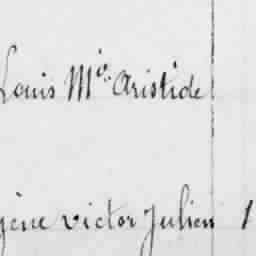 Louis Mie. Aristide
gène Victor Julien 1